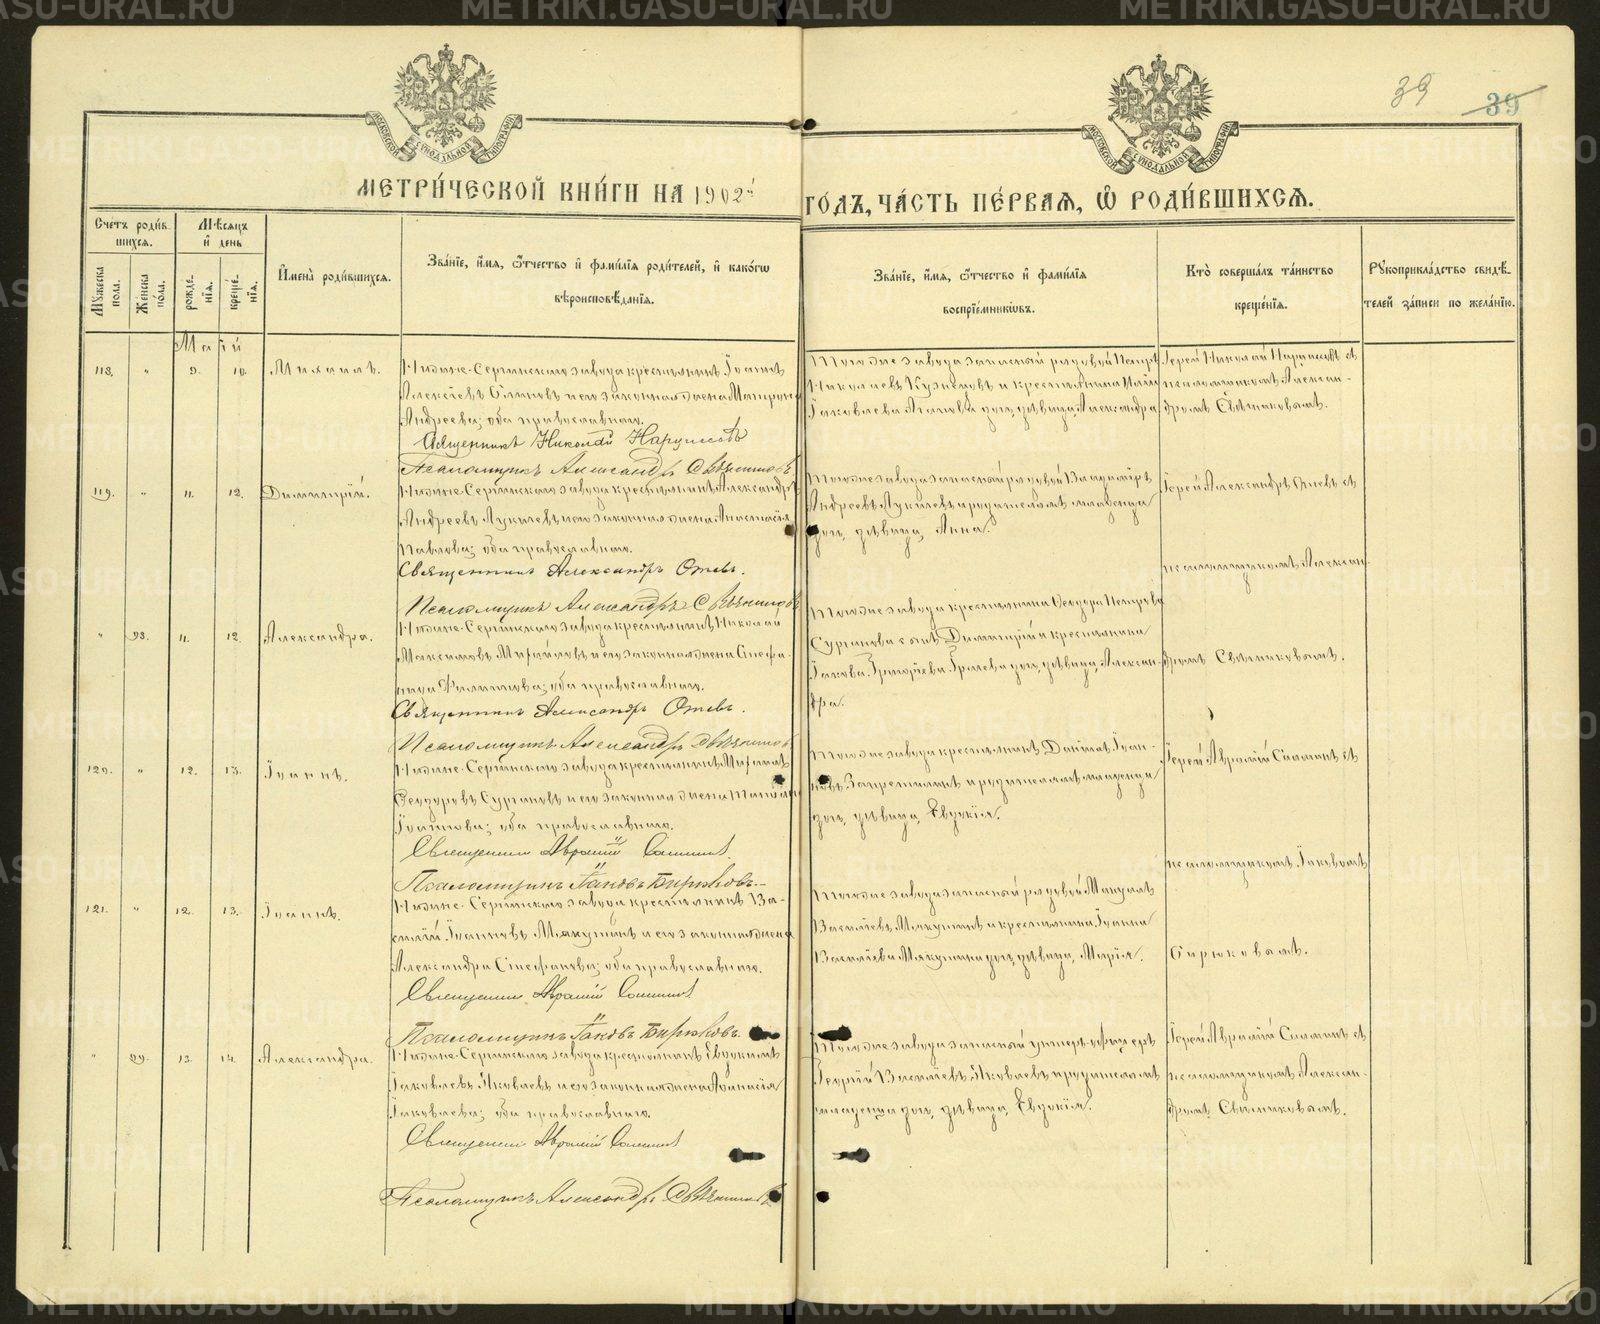 METRIKI.GASO-URAL.RU
39
39
МОСКОВСКОЙ СѴНОДАЛЬНОЙ ТИПОГРАФІИ
МОСКОВСКОЙ СѴНОДАЛЬНОЙ ТИПОГРАФІИ
МЕТРИ́ЧЕСКОЙ КНИ́ГИ НА 1902й ГО́ДЪ, ЧА́СТЬ ПЕ́РВАѦ, Ѡ҆ РОДИ́ВШИХСѦ.
Сче́тъ роди́в-
шихсѧ.
Мꙋжеска пола.
Же́нска по́ла.
Мѣ́сѧцъ
и҆ день
рожде́-
нїѧ.
креще́-
нїѧ.
И҆мена̀ роди́вшихсѧ.
Зва́нїе, и҆́мѧ, ѻ҆́тчество и҆ фами́лїѧ роди́телей, и҆ како́гѡ
вѣроисповѣ́данїѧ.
Зва́нїе, и҆́мѧ, ѻ҆́тчество и҆ фами́лїѧ
воспрїе́мникѡвъ.
Кто̀ соверша́лъ та́инство
креще́нїѧ.
Рꙋкоприкла́дство свидѣ́-
телей за́писи по жела́нїю.
Май
118. " 9. 10. Михаилъ.
Нижне-Сергинскаго завода крестьянинъ Іоаннъ
Алексѣевъ и его законная жена Матрона
Андреева; оба православнаго.
Священникъ Николай
Псаломщикъ Александръ Свѣшниковъ
Тогоже завода запасный рядовой Петръ
Николаевъ Кузнецовъ и крестьянина
Іаковлева дочь, дѣвица, Александра.
Іерей Николай съ
псаломщикомъ Алексан-
дромъ Свѣшниковымъ.
119. " 11. 12. Димитрій.
Нижне-Сергинскаго завода крестьянинъ Александръ
Андреевъ и его законная жена Анастасія
Павлова; оба православнаго.
Священникъ Александръ
Псаломщикъ Александръ Свѣшниковъ
Тогоже завода запасный рядовой Владиміръ
Андреевъ и родителямъ младенца
дочь, дѣвица, Анна.
Іерей Александръ съ
псаломщикомъ Алексан-
" 98. 11. 12. Александра.
Нижне-Сергинскаго завода крестьянинъ Николай
Максимовъ и его законная жена Стефа-
нида Филиппова; оба православнаго.
Священникъ Александръ
Псаломщикъ Александръ Свѣшниковъ
Тогоже завода крестьянина Ѳеодора Петрова
Сурганова сынъ Димитрій и крестьянина
Іакова Григоріева дочь, дѣвица, Алексан-
дра.
дромъ Свѣшниковымъ.
120. " 12. 13. Іоаннъ.
Нижне-Сергинскаго завода крестьянинъ
Ѳеодоровъ Сургановъ и его законная жена
Іоаннова; оба православнаго.
Священникъ Аврамій
Псаломщикъ Іаковъ Бирюковъ.
Тогоже завода крестьянинъ Даніилъ Іоан-
новъ и родителямъ младенца
дочь, дѣвица, Евдокія.
Іерей Аврамій съ
псаломщикомъ Іаковомъ
121. " 12. 13. Іоаннъ.
Нижне-Сергинскаго завода крестьянинъ Ва-
силій Іоанновъ Мякушинъ и его законная жена
Александра Стефанова; оба православнаго.
Священникъ Аврамій
Псаломщикъ Іаковъ Бирюковъ.
Тогоже завода запасный рядовой
Василіевъ Мякушинъ и крестьянина Іоанна
Василіева Мякушина дочь, дѣвица, Марія.
Бирюковымъ.
" 99. 13. 14. Александра.
Нижне-Сергинскаго завода крестьянинъ Евдокимъ
Іаковлевъ Яковлевъ и его законная жена
Іаковлева; оба православнаго.
Священникъ Аврамій
Псаломщикъ Александръ Свѣшниковъ
Тогоже завода запасный унтеръ-офицеръ
Георгій Василіевъ Яковлевъ и родителямъ
младенца дочь, дѣвица, Евдокія.
Іерей Аврамій съ
псаломщикомъ Алексан-
дромъ Свѣшниковымъ.